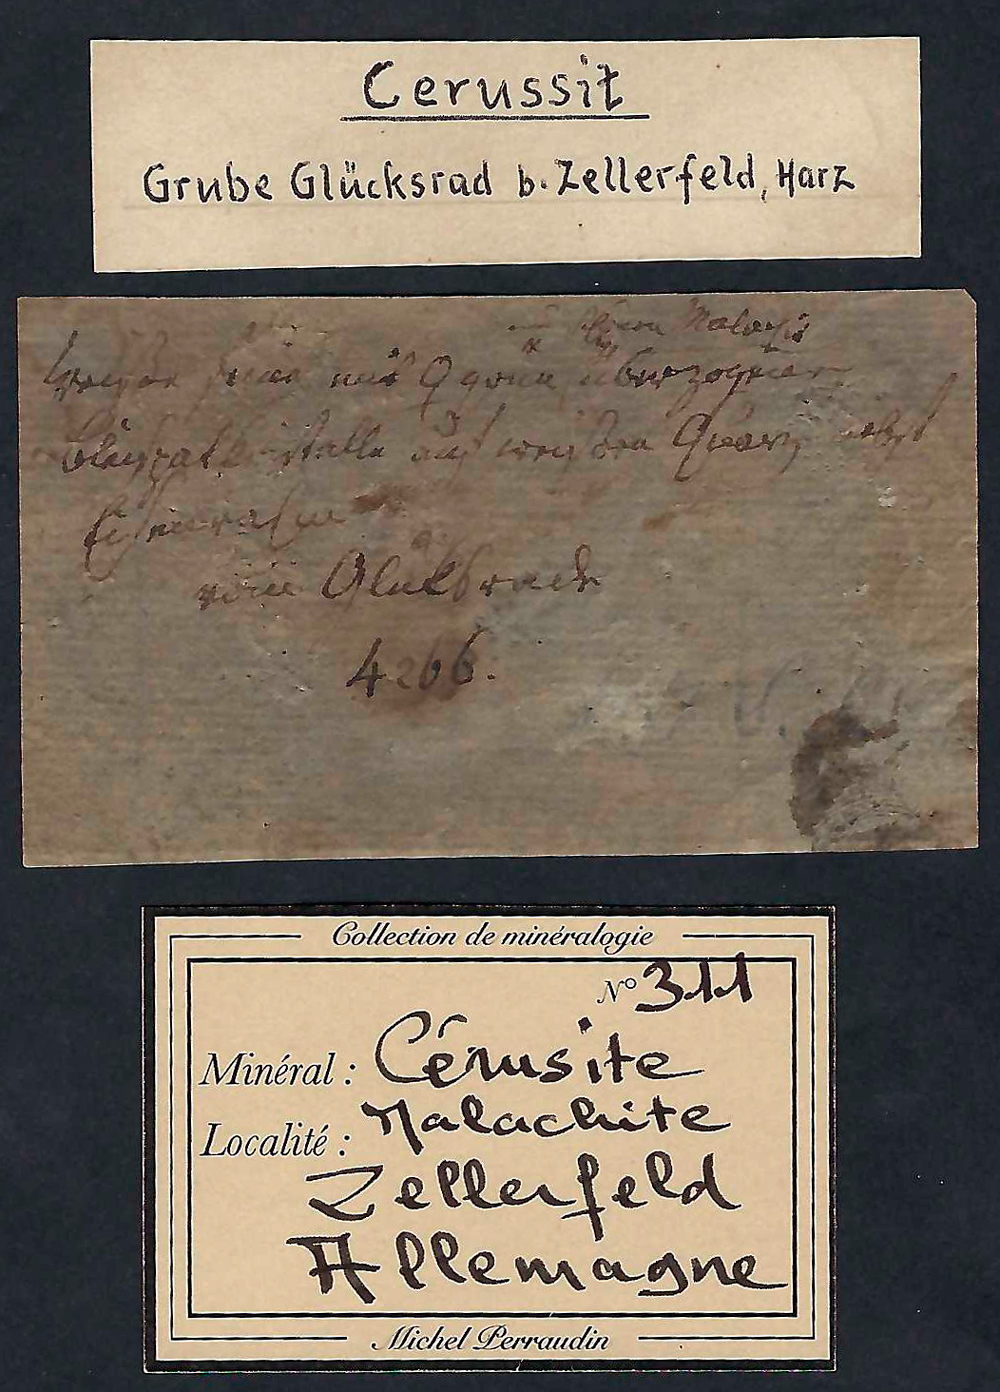 Cerussit
Grube Glücksrad b. Zellerfeld, Harz
Malachit
mit grün überzogener
auf weissen Quarz nebst
vom Glüksrade
4266.
Collection de minéralogie
N° 311
Minéral : Cérusite
Malachite
Localité :
Zellerfeld
Allemagne
Michel Perraudin